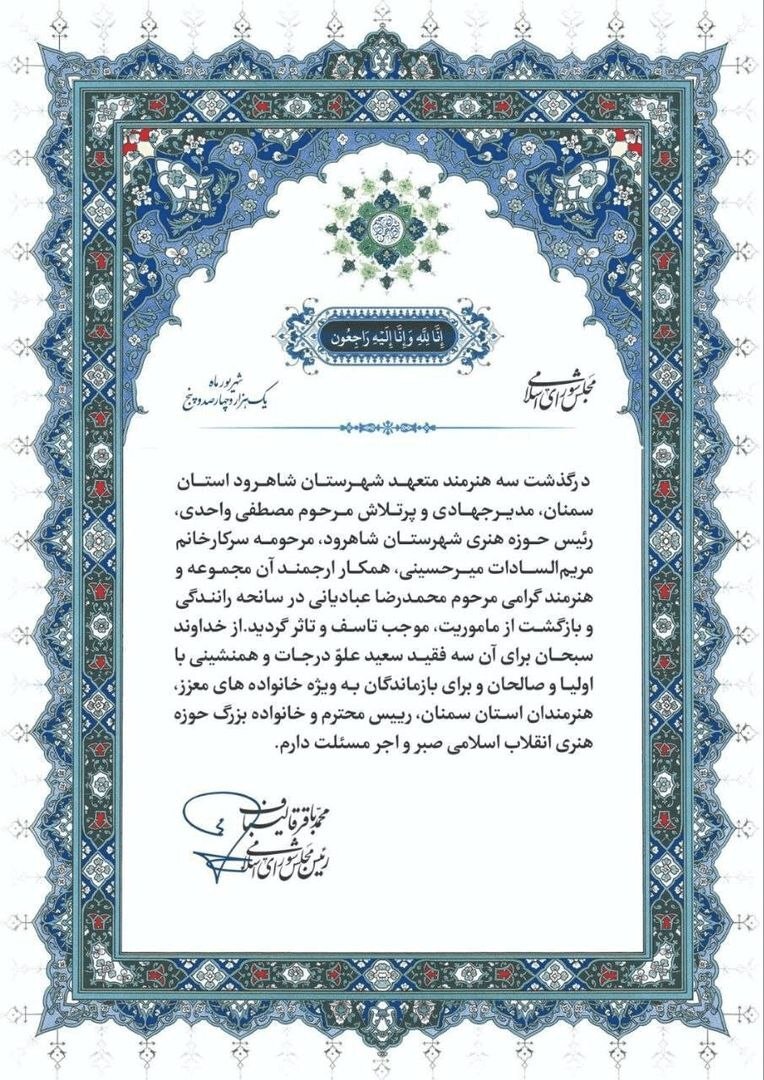 إِنَّا لِلَّهِ وَإِنَّا إِلَيْهِ رَاجِعُون
مجلس شورای اسلامی
شهریور ماه
یک هزار و چهارصد و پنج
درگذشت سه هنرمند متعهد شهرستان شاهرود استان
سمنان، مدیرجهادی و پرتلاش مرحوم مصطفی واحدی،
رئیس حوزه هنری شهرستان شاهرود، مرحومه سرکارخانم
مریم‌السادات میرحسینی، همکار ارجمند آن مجموعه و
هنرمند گرامی مرحوم محمدرضا عبادیانی در سانحه رانندگی
و بازگشت از ماموریت، موجب تاسف و تاثر گردید.از خداوند
سبحان برای آن سه فقید سعید علوّ درجات و همنشینی با
اولیا و صالحان و برای بازماندگان به ویژه خانواده های معزز،
هنرمندان استان سمنان، رییس محترم و خانواده بزرگ حوزه
هنری انقلاب اسلامی صبر و اجر مسئلت دارم.
محمدباقر قالیباف
رئیس مجلس شورای اسلامی